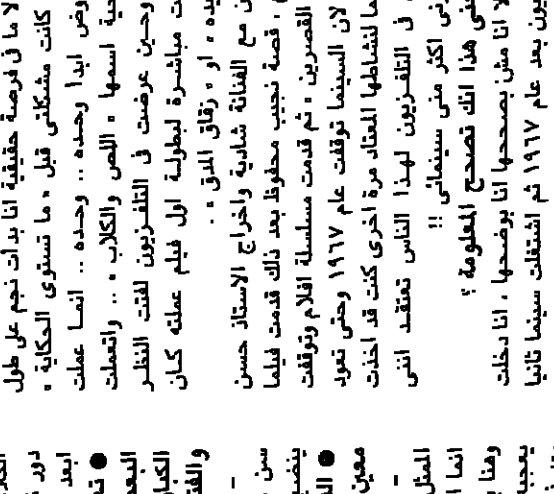 لا ما في فرصة حقيقية انا بدات نجم على طول
كانت مشكلتى قبل « ما تستوى الحكاية »
ابدا وحده .. وحده .. انما عملت
اسمها « اللص والكلاب » .. واتعملت
وحين عرضت فى التلفزيون لفتت النظر
مباشرة لبطولة اول فيلم عملته كان
» او « زقاق المدق » .
مع الفنانة شادية واخراج الاستاذ حسن
، قصة نجيب محفوظ بعد ذلك قدمت فيلما
القصرين » ثم قدمت مسلسلة افلام وتوقفت
لان السينما توقفت عام ١٩٦٧ وحتى تعود
لنشاطها المعتاد مرة اخرى كنت قد اخذت
فى التلفزيون لهذا الناس تعتقد اننى
اكثر منى سينمائى !!
هذا انك تصحح المعلومة ؟
لا انا مش بصححها ، انا بوضحها ، انا دخلت
بعد عام ١٩٦٧ ثم اشتغلت سينما ثانيا
دور
ابعد
●
-
سن
●
معين
-
المثل
انما
وهنا